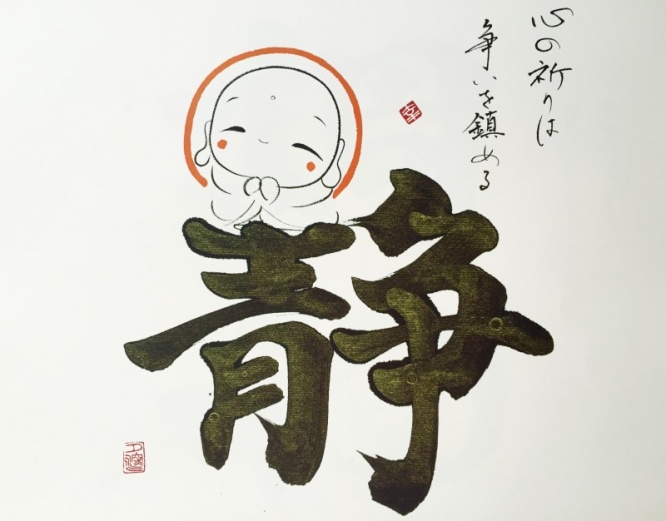 心の祈りは
争いを鎮める
幸
静